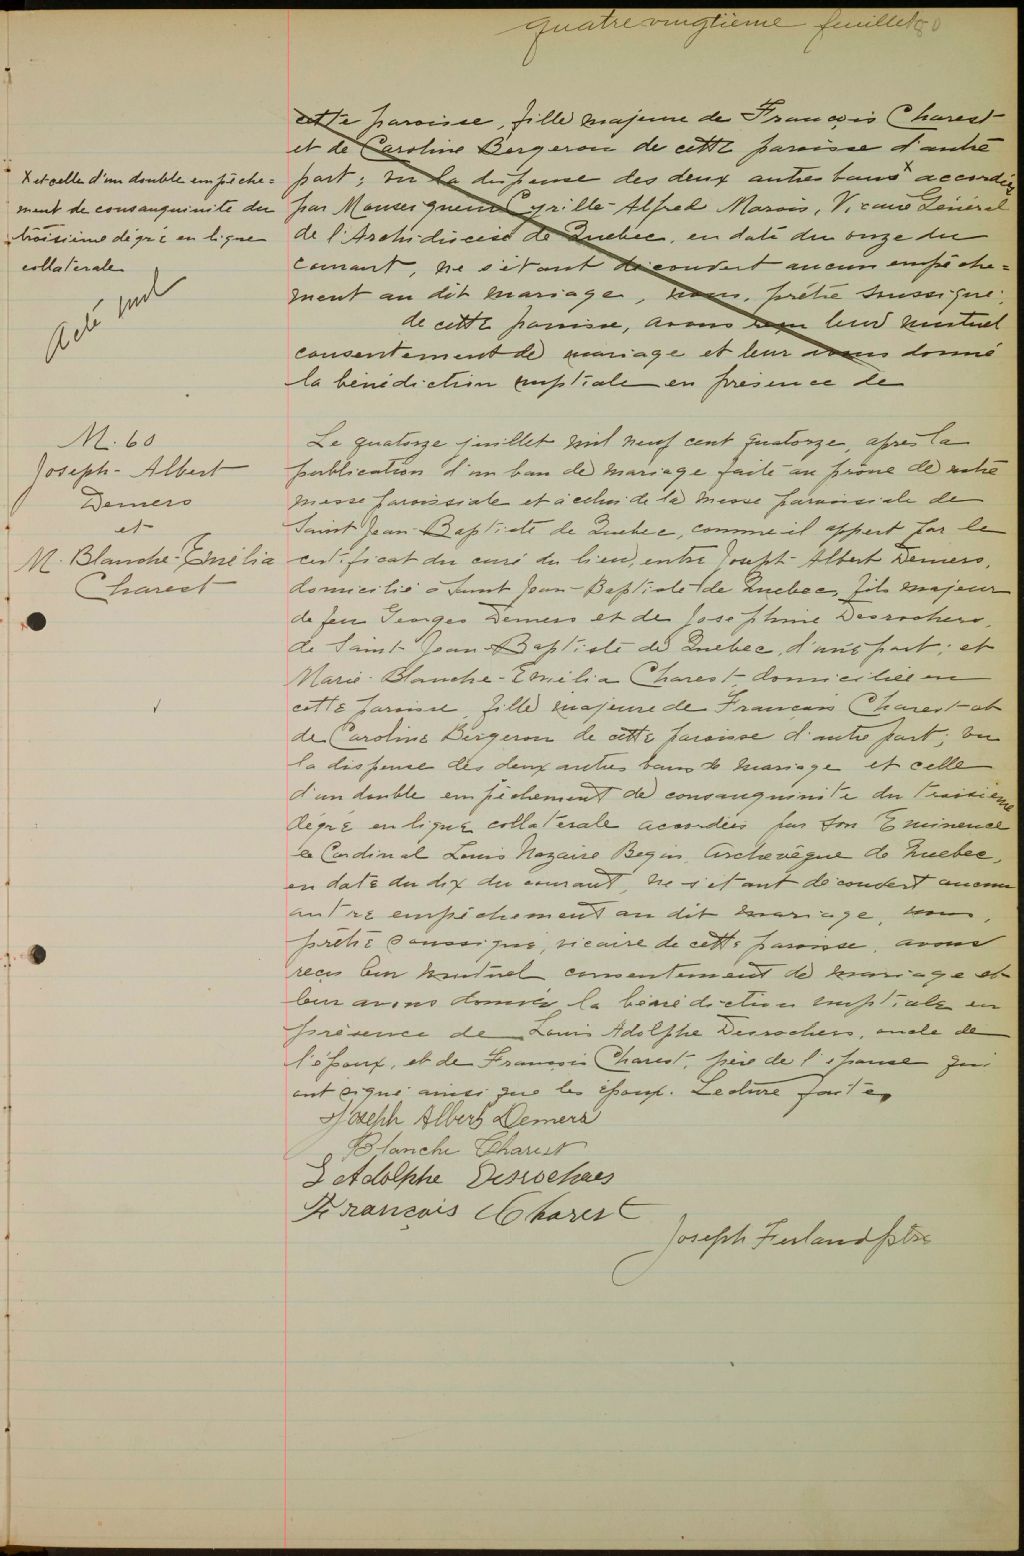 quatre vingtième feuillet 80
cette paroisse, fille majeure de François Charest
et de Caroline Bergeron de cette paroisse d'autre
part; vu la dispense des deux autres bans x accordée
par Monseigneur Cyrille-Alfred Marois, Vicaire Général
de l'Archidiocèse de Quebec, en date du onze du
courant, ne s'étant découvert aucun empêche=
ment au dit mariage, nous, prêtre soussigné,
de cette paroisse, avons reçu leur mutuel
consentement de mariage et leur avons donné
la bénédiction nuptiale en présence de
x et celle d'un double empêche=
ment de consanguinité du
troisième dégré en ligne
collatérale
Acte nul
M. 60
Joseph-Albert
Demers
et
M. Blanche-Emélia
Charest
Le quatorze juillet mil neuf cent quatorze, après la
publication d'un ban de mariage faite au prône de notre
messe paroissiale et à celui de la messe paroissiale de
Saint Jean-Baptiste de Quebec, comme il appert par le
certificat du curé du lieu, entre Joseph-Albert Demers,
domicilié à Saint Jean-Baptiste de Quebec, fils majeur
de feu Georges Demers et de Josephine Desrochers,
de Saint-Jean-Baptiste de Quebec, d'une part; et
Marie-Blanche-Emélia Charest, domiciliée en
cette paroisse, fille majeure de François Charest et
de Caroline Bergeron de cette paroisse d'autre part; vu
la dispense des deux autres bans de mariage et celle
d'un double empêchement de consanguinité du troisième
dégré en ligne collatérale accordées par Son Eminence
le Cardinal Louis Nazaire Begin, Archevêque de Quebec,
en date du dix du courant, ne s'étant découvert aucun
autre empêchement au dit mariage, nous,
prêtre soussigné, vicaire de cette paroisse, avons
reçu leur mutuel consentement de mariage et
leur avons donnée la bénédiction nuptiale en
présence de Louis Adolphe Desrochers, oncle de
l'époux, et de François Charest, père de l'épouse qui
ont signé ainsi que les époux. Lecture faite.
Joseph Albert Demers
Blanche Charest
L Adolphe Desrochers
François Charest
Joseph Ferland ptre